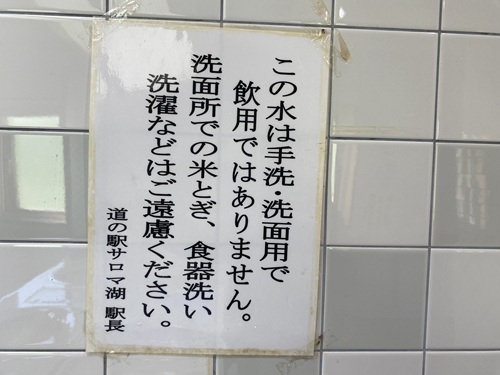 この水は手洗・洗面用で
飲用ではありません。
洗面所での米とぎ、食器洗い
洗濯などはご遠慮ください。
道の駅サロマ湖 駅長